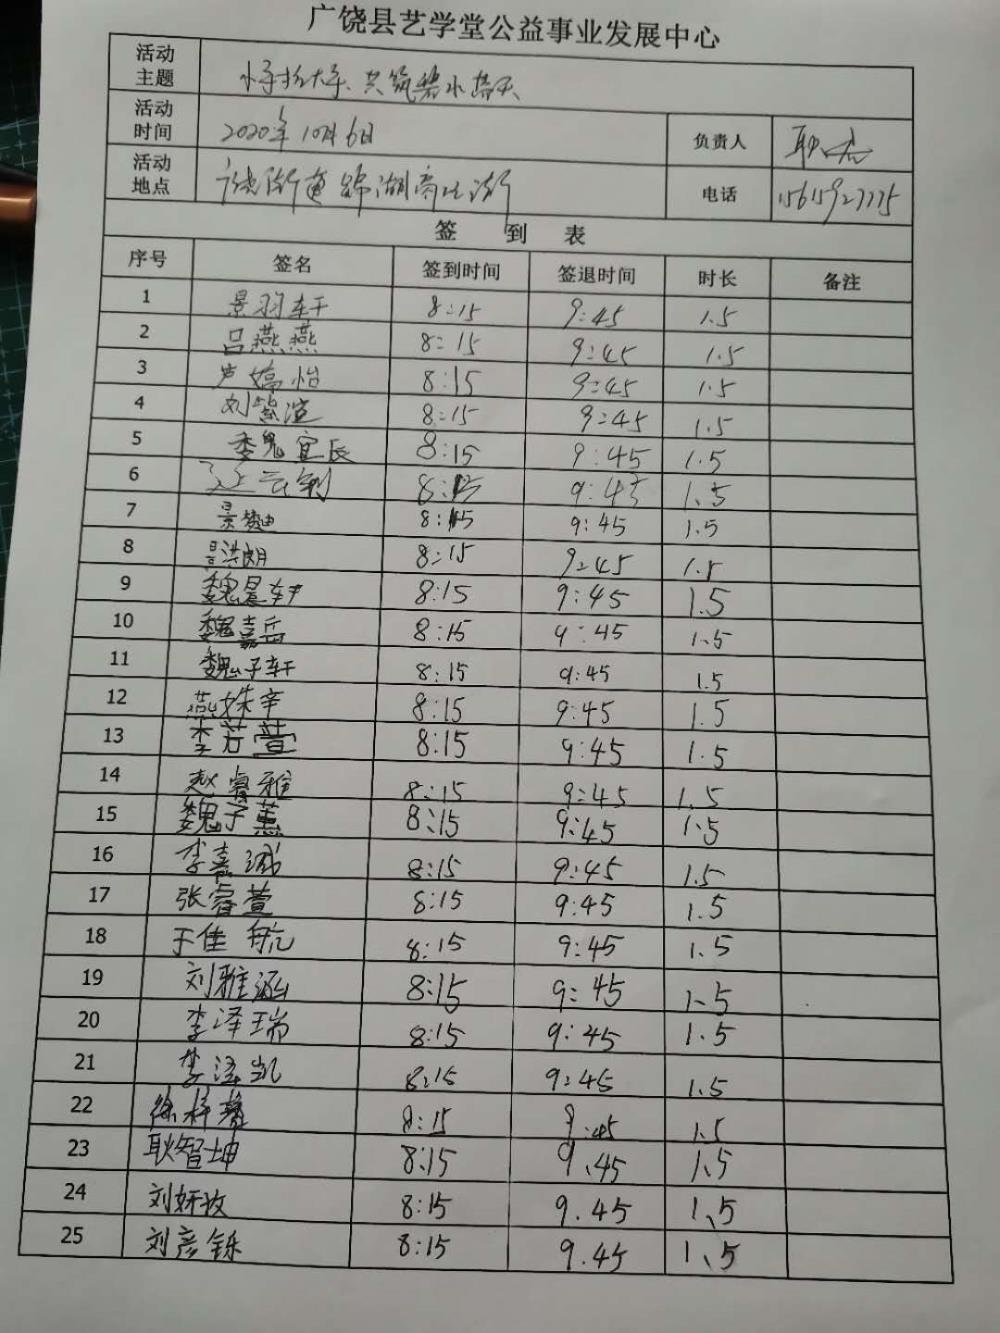 广饶县艺学堂公益事业发展中心
活动主题 小手拉大手、共筑碧水蓝天
活动时间 2020年10月6日 负责人 耿
活动地点 街道锦湖商业街 电话 15615927775
签 到 表
序号 签名 签到时间 签退时间 时长 备注
1 景羽轩 8:15 9:45 1.5
2 吕燕燕 8:15 9:45 1.5
3 卢嫱怡 8:15 9:45 1.5
4 刘紫渲 8:15 9:45 1.5
5 魏宜辰 8:15 9:45 1.5
6 8:15 9:45 1.5
7 景楚迪 8:15 9:45 1.5
8 景洪朗 8:15 9:45 1.5
9 魏景轩 8:15 9:45 1.5
10 魏嘉岳 8:15 9:45 1.5
11 魏子轩 8:15 9:45 1.5
12 燕姝辛 8:15 9:45 1.5
13 李芳萱 8:15 9:45 1.5
14 赵睿雅 8:15 9:45 1.5
15 魏子薰 8:15 9:45 1.5
16 李嘉诚 8:15 9:45 1.5
17 张睿萱 8:15 9:45 1.5
18 于佳航 8:15 9:45 1.5
19 刘雅涵 8:15 9:45 1.5
20 李泽瑞 8:15 9:45 1.5
21 李泽凯 8:15 9:45 1.5
22 徐梓馨 8:15 9:45 1.5
23 耿智坤 8:15 9.45 1.5
24 刘妍玫 8:15 9.45 1.5
25 刘彦铄 8:15 9.45 1.5